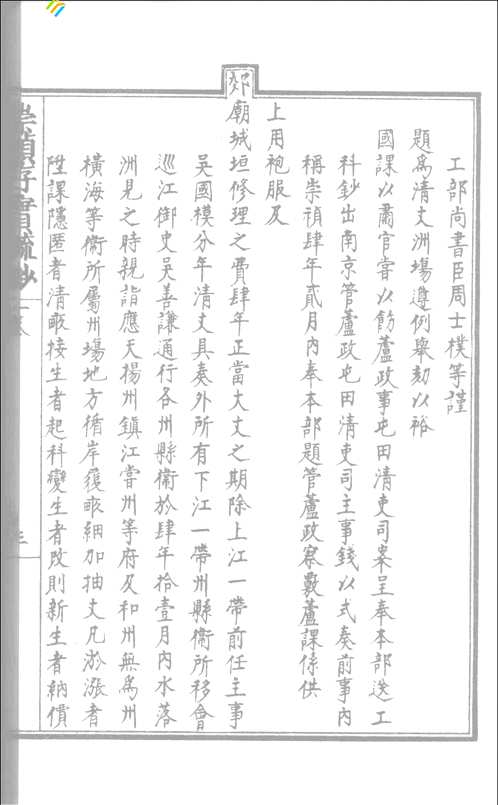 工部尚書臣周士樸等謹
題為清丈洲場遵例舉劾以裕
國課以肅官常以飭蘆政事屯田清吏司案呈奉本部送工
科鈔出南京管蘆政屯田清吏司主事錢以式奏前事內
稱崇禎肆年貳月內奉本部題管蘆政察覈蘆課係供
上用袍服及
郊廟城垣修理之費肆年正當大丈之期除上江一帶前任主事
吳國模分年清丈具奏外所有下江一帶州縣衛所移會
巡江御史吳善謙通行各州縣衛於肆年拾壹月內水落
洲見之時親詣應天揚州鎮江嘗州等府及和州無為州
橫海等衛所屬州場地方循岸履畝細加抽丈凡淤漲者
陞課隱匿者清畝接生者起科變生者改則新生者納價
崇禎存實疏鈔